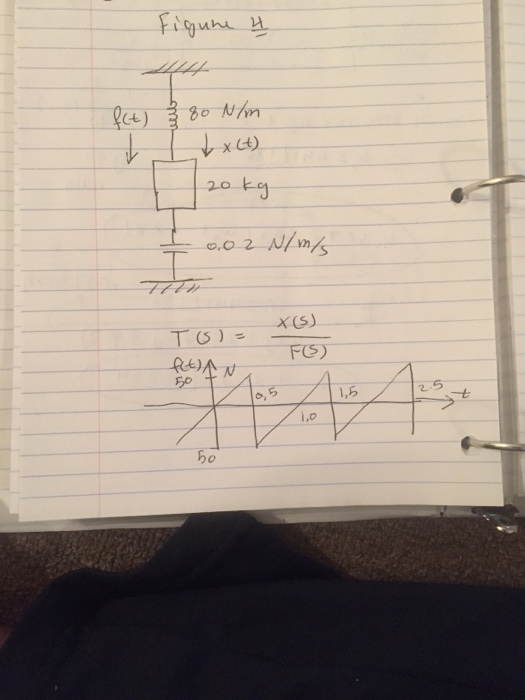 Figure 4
f(t) 80 N/m
x(t)
20 kg
0.02 N/m/s
T(S) = X(S)
F(S)
f(t) N
50
0,5 1,5 2.5 t
1,0
50